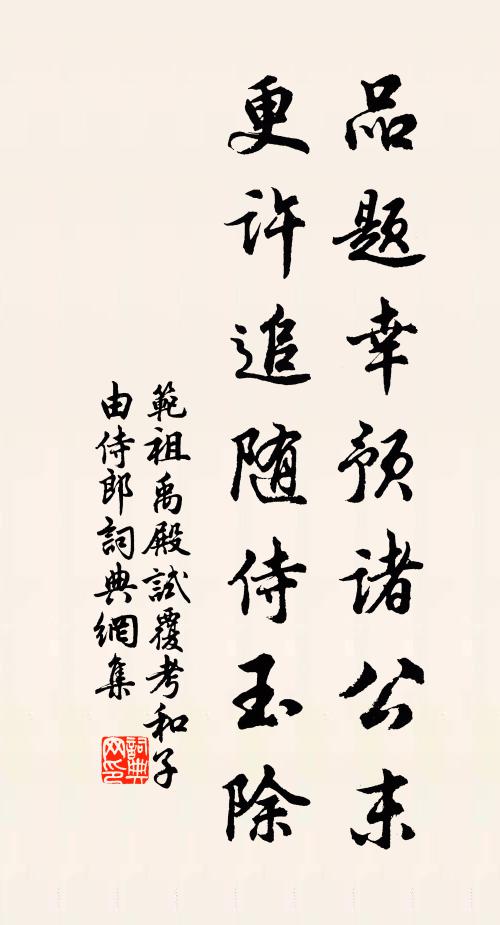 品题幸预诸公末
更许追随侍玉除
範祖禹殿試覆考和子
由侍郎詞典網集
詞典网印